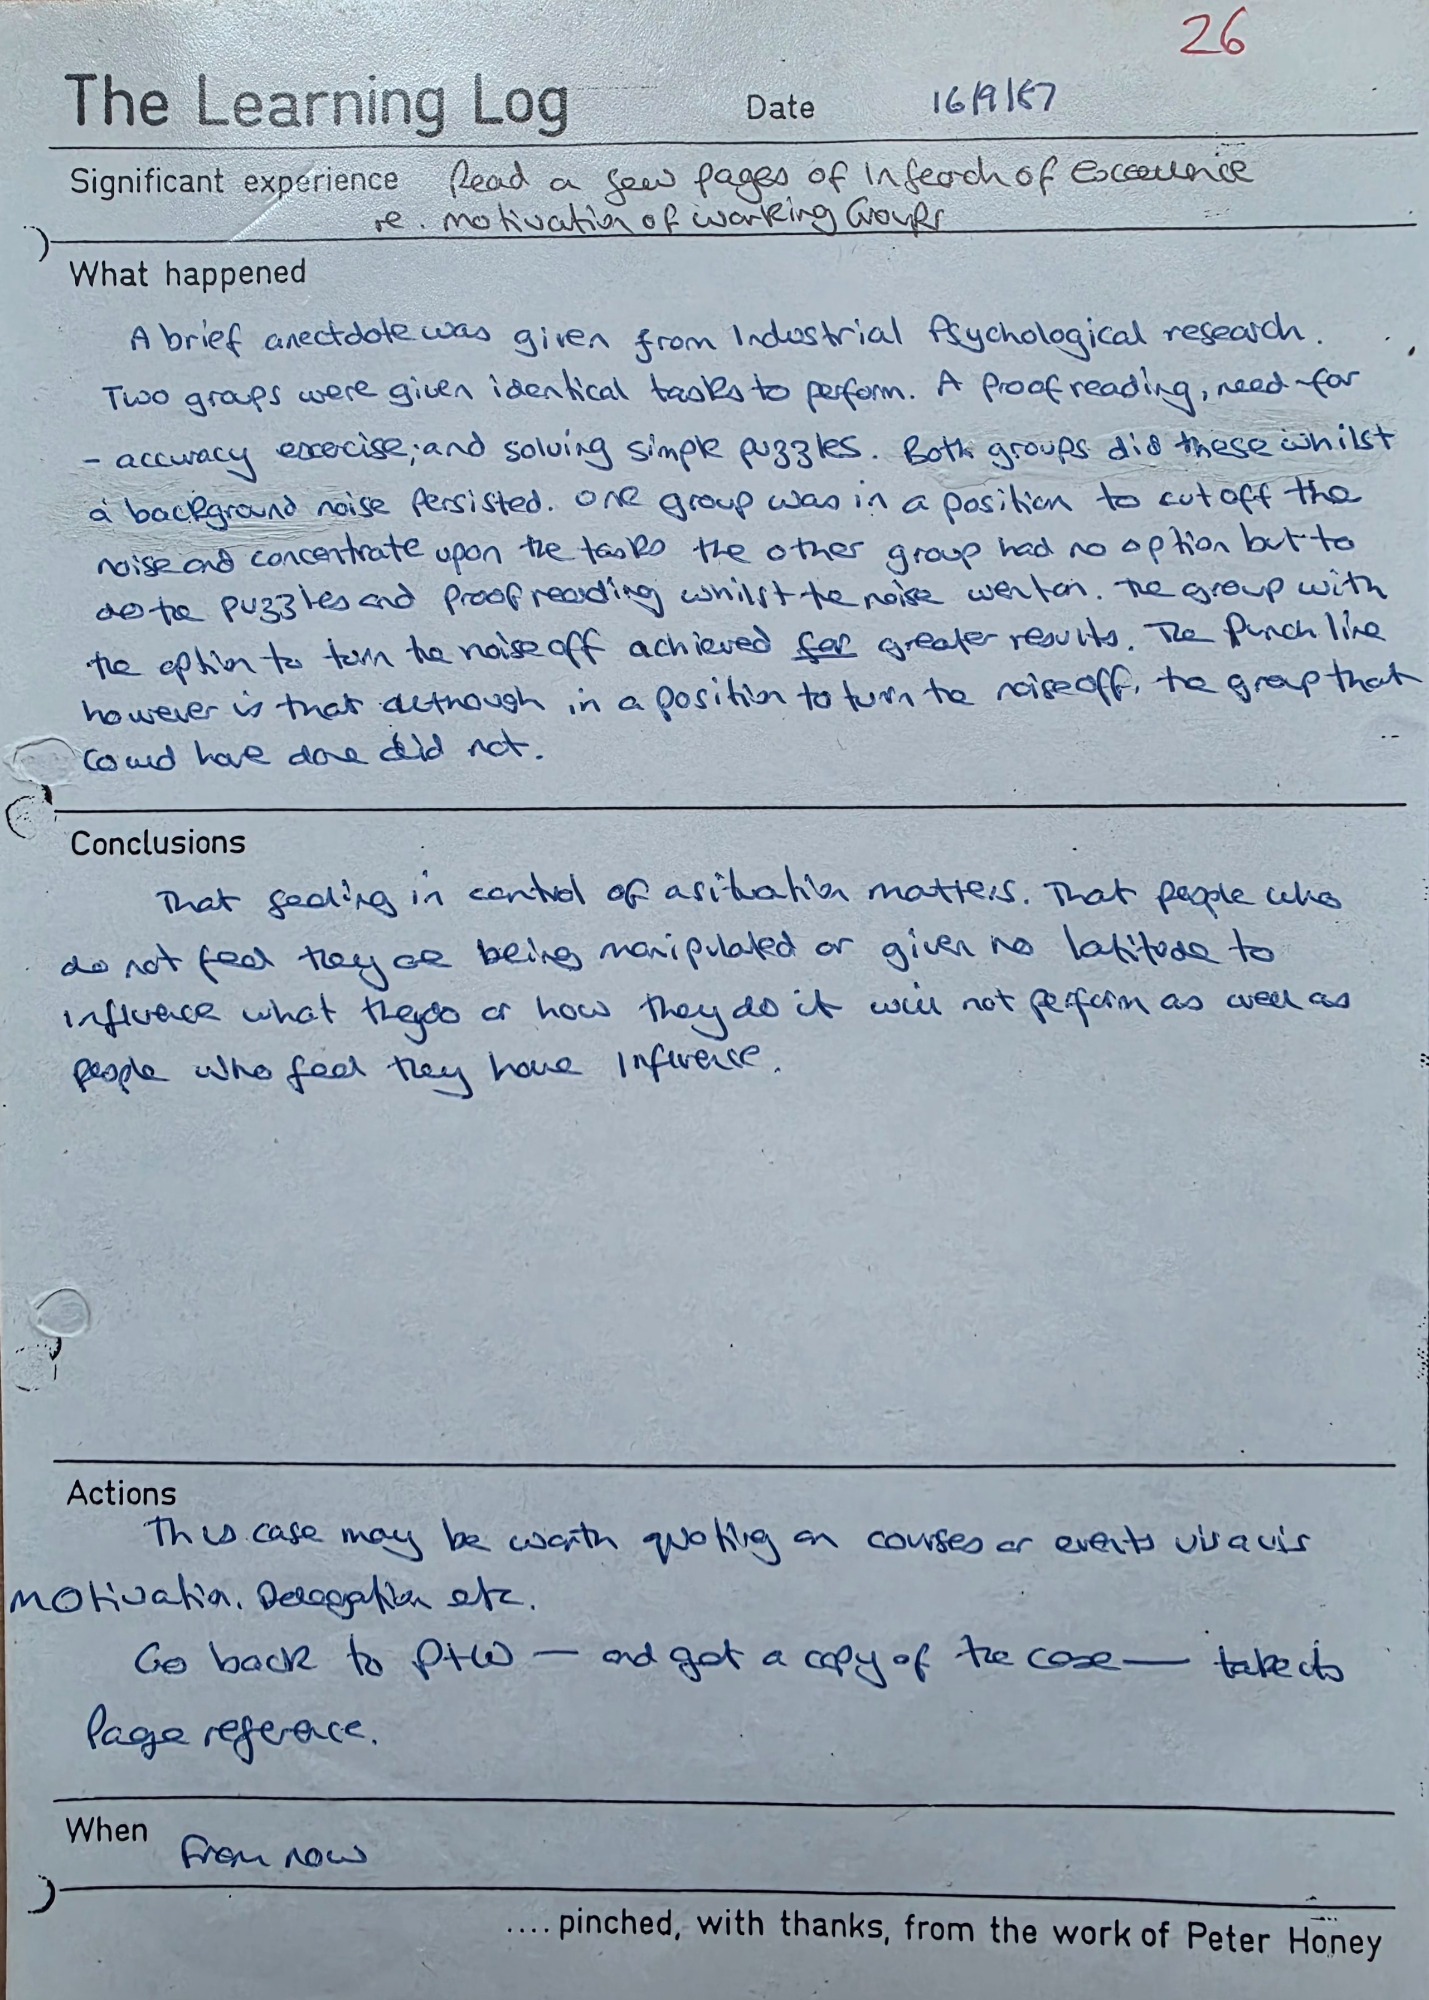 26
The Learning Log Date 16/9/87
Significant experience Read a few pages of In Search of Excellence
re. motivation of working Groups
What happened
A brief anectdote was given from Industrial Psychological research.
Two groups were given identical tasks to perform. A Proof reading, need-for
- accuracy excercise; and solving simple puzzles. Both groups did these whilst
a background noise persisted. One group was in a position to cut off the
noise and concentrate upon the tasks the other group had no option but to
do the puzzles and proof reading whilst the noise went on. The group with
the option to turn the noise off achieved far greater results. The Punch line
however is that although in a position to turn the noise off, the group that
could have done did not.
Conclusions
That feeling in control of a situation matters. That people who
do not feel they are being manipulated or given no latitude to
influence what they do or how they do it will not perform as well as
people who feel they have influence.
Actions
This case may be worth quoting on courses or events vis a vis
motivation. Delegation etc.
Go back to P+W — and get a copy of the case — take its
Page reference.
When From now
.... pinched, with thanks, from the work of Peter Honey